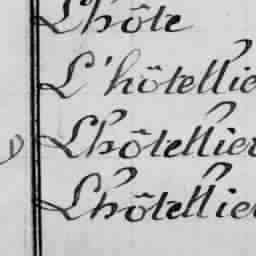 L'hôte
L'hôtellie
Lhôtellier
Lhôtellier